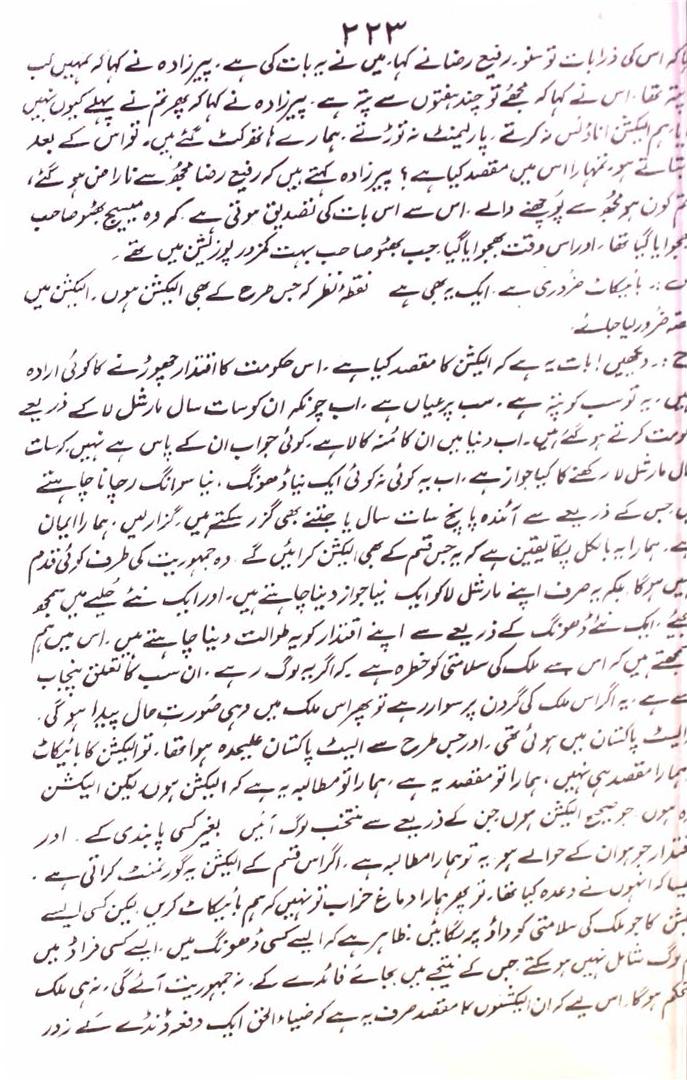 ۲۲۳
کہ اس کی ذرا بات تو سنو۔ رفیع رضا نے کہا، میں نے یہ بات کی ہے۔ پیرزادہ نے کہا کہ تمہیں کب
پتہ تھا۔ اس نے کہا کہ مجھے تو چند ہفتوں سے پتہ ہے۔ پیرزادہ نے کہا کہ پھر تم نے پہلے کیوں نہیں
ہم الیکشن اناؤنس نہ کرتے۔ پارلیمنٹ نہ توڑتے۔ ہمارے ہاتھ کٹ گئے ہیں۔ تو اس کے بعد
بتاتے ہو۔ تمہارا اس میں مقصد کیا ہے؟ پیرزادہ کہتے ہیں کہ رفیع رضا مجھ سے ناراض ہو گئے،
تم کون ہو مجھ سے پوچھنے والے۔ اس سے اس بات کی تصدیق ہوتی ہے۔ کہ وہ میسیج بھٹو صاحب
بھجوایا گیا تھا۔ اور اس وقت بھجوایا گیا جب بھٹو صاحب بہت کمزور پوزیشن میں تھے۔
س:۔ بائیکاٹ ضروری ہے۔ ایک یہ بھی ہے نقطۂ نظر کہ جس طرح کے بھی الیکشن ہوں۔ الیکشن میں
حصہ ضرور لیا جائے۔
ج:۔ دیکھیں! بات یہ ہے کہ الیکشن کا مقصد کیا ہے۔ اس حکومت کا اقتدار چھوڑنے کا کوئی ارادہ
نہیں۔ یہ تو سب کو پتہ ہے۔ سب پر عیاں ہے۔ اب چونکہ ان کو سات سال مارشل لا کے ذریعے
حکومت کرتے ہو گئے ہیں۔ اب دنیا میں ان کا منہ کالا ہے۔ کوئی جواب ان کے پاس ہے نہیں کہ سات
سال مارشل لا رکھنے کا کیا جواز ہے۔ اب یہ کوئی نہ کوئی ایک نیا ڈھونگ، نیا سوانگ رچانا چاہتے
ہیں جس کے ذریعے سے آئندہ پانچ سات سال یا جتنے بھی گزر سکتے ہیں۔ گزاریں۔ ہمارا ایمان
ہے۔ ہمارا یہ بالکل پکا یقین ہے کہ یہ جس قسم کے بھی الیکشن کرائیں گے۔ وہ جمہوریت کی طرف کوئی قدم
نہیں ہو گا بلکہ یہ صرف اپنے مارشل لا کو ایک نیا جواز دینا چاہتے ہیں۔ اور ایک نئے حلیے میں سمجھ
لیجئے۔ ایک نئے ڈھونگ کے ذریعے سے اپنے اقتدار کو یہ طوالت دینا چاہتے ہیں۔ اس میں ہم
سمجھتے ہیں کہ اس سے ملک کی سلامتی کو خطرہ ہے۔ کہ اگر یہ لوگ رہے۔ ان سب کا تعلق پنجاب
سے ہے۔ یہ اگر اس ملک کی گردن پر سوار رہے تو پھر اس ملک میں وہی صورتِ حال پیدا ہو گی۔
ایسٹ پاکستان میں ہوئی تھی۔ اور جس طرح سے ایسٹ پاکستان علیحدہ ہوا تھا۔ تو الیکشن کا بائیکاٹ
ہمارا مقصد ہی نہیں، ہمارا تو مقصد یہ ہے، ہمارا تو مطالبہ یہ ہے کہ الیکشن ہوں۔ لیکن الیکشن
وہ ہوں۔ جو صحیح الیکشن ہوں جن کے ذریعے سے منتخب لوگ آئیں بغیر کسی پابندی کے۔ اور
اقتدار جو ہو ان کے حوالے ہو۔ یہ تو ہمارا مطالبہ ہے۔ اگر اس قسم کے الیکشن یہ گورنمنٹ کراتی ہے۔
جیسا کہ انہوں نے وعدہ کیا تھا۔ تو پھر ہمارا دماغ خراب تو نہیں کہ ہم بائیکاٹ کریں۔ لیکن کسی ایسے
الیکشن کا جو ملک کی سلامتی کو داؤ پر لگائیں۔ ظاہر ہے کہ ایسے کسی ڈھونگ میں، ایسے کسی فراڈ میں
ہم لوگ شامل نہیں ہو سکتے جس کے نتیجے میں بجائے فائدے کے۔ نہ جمہوریت آئے گی، نہ ہی ملک
مستحکم ہو گا۔ اس لیے کہ ان الیکشنوں کا مقصد صرف یہ ہے کہ ضیاء الحق ایک دفعہ ڈنڈے کے زور